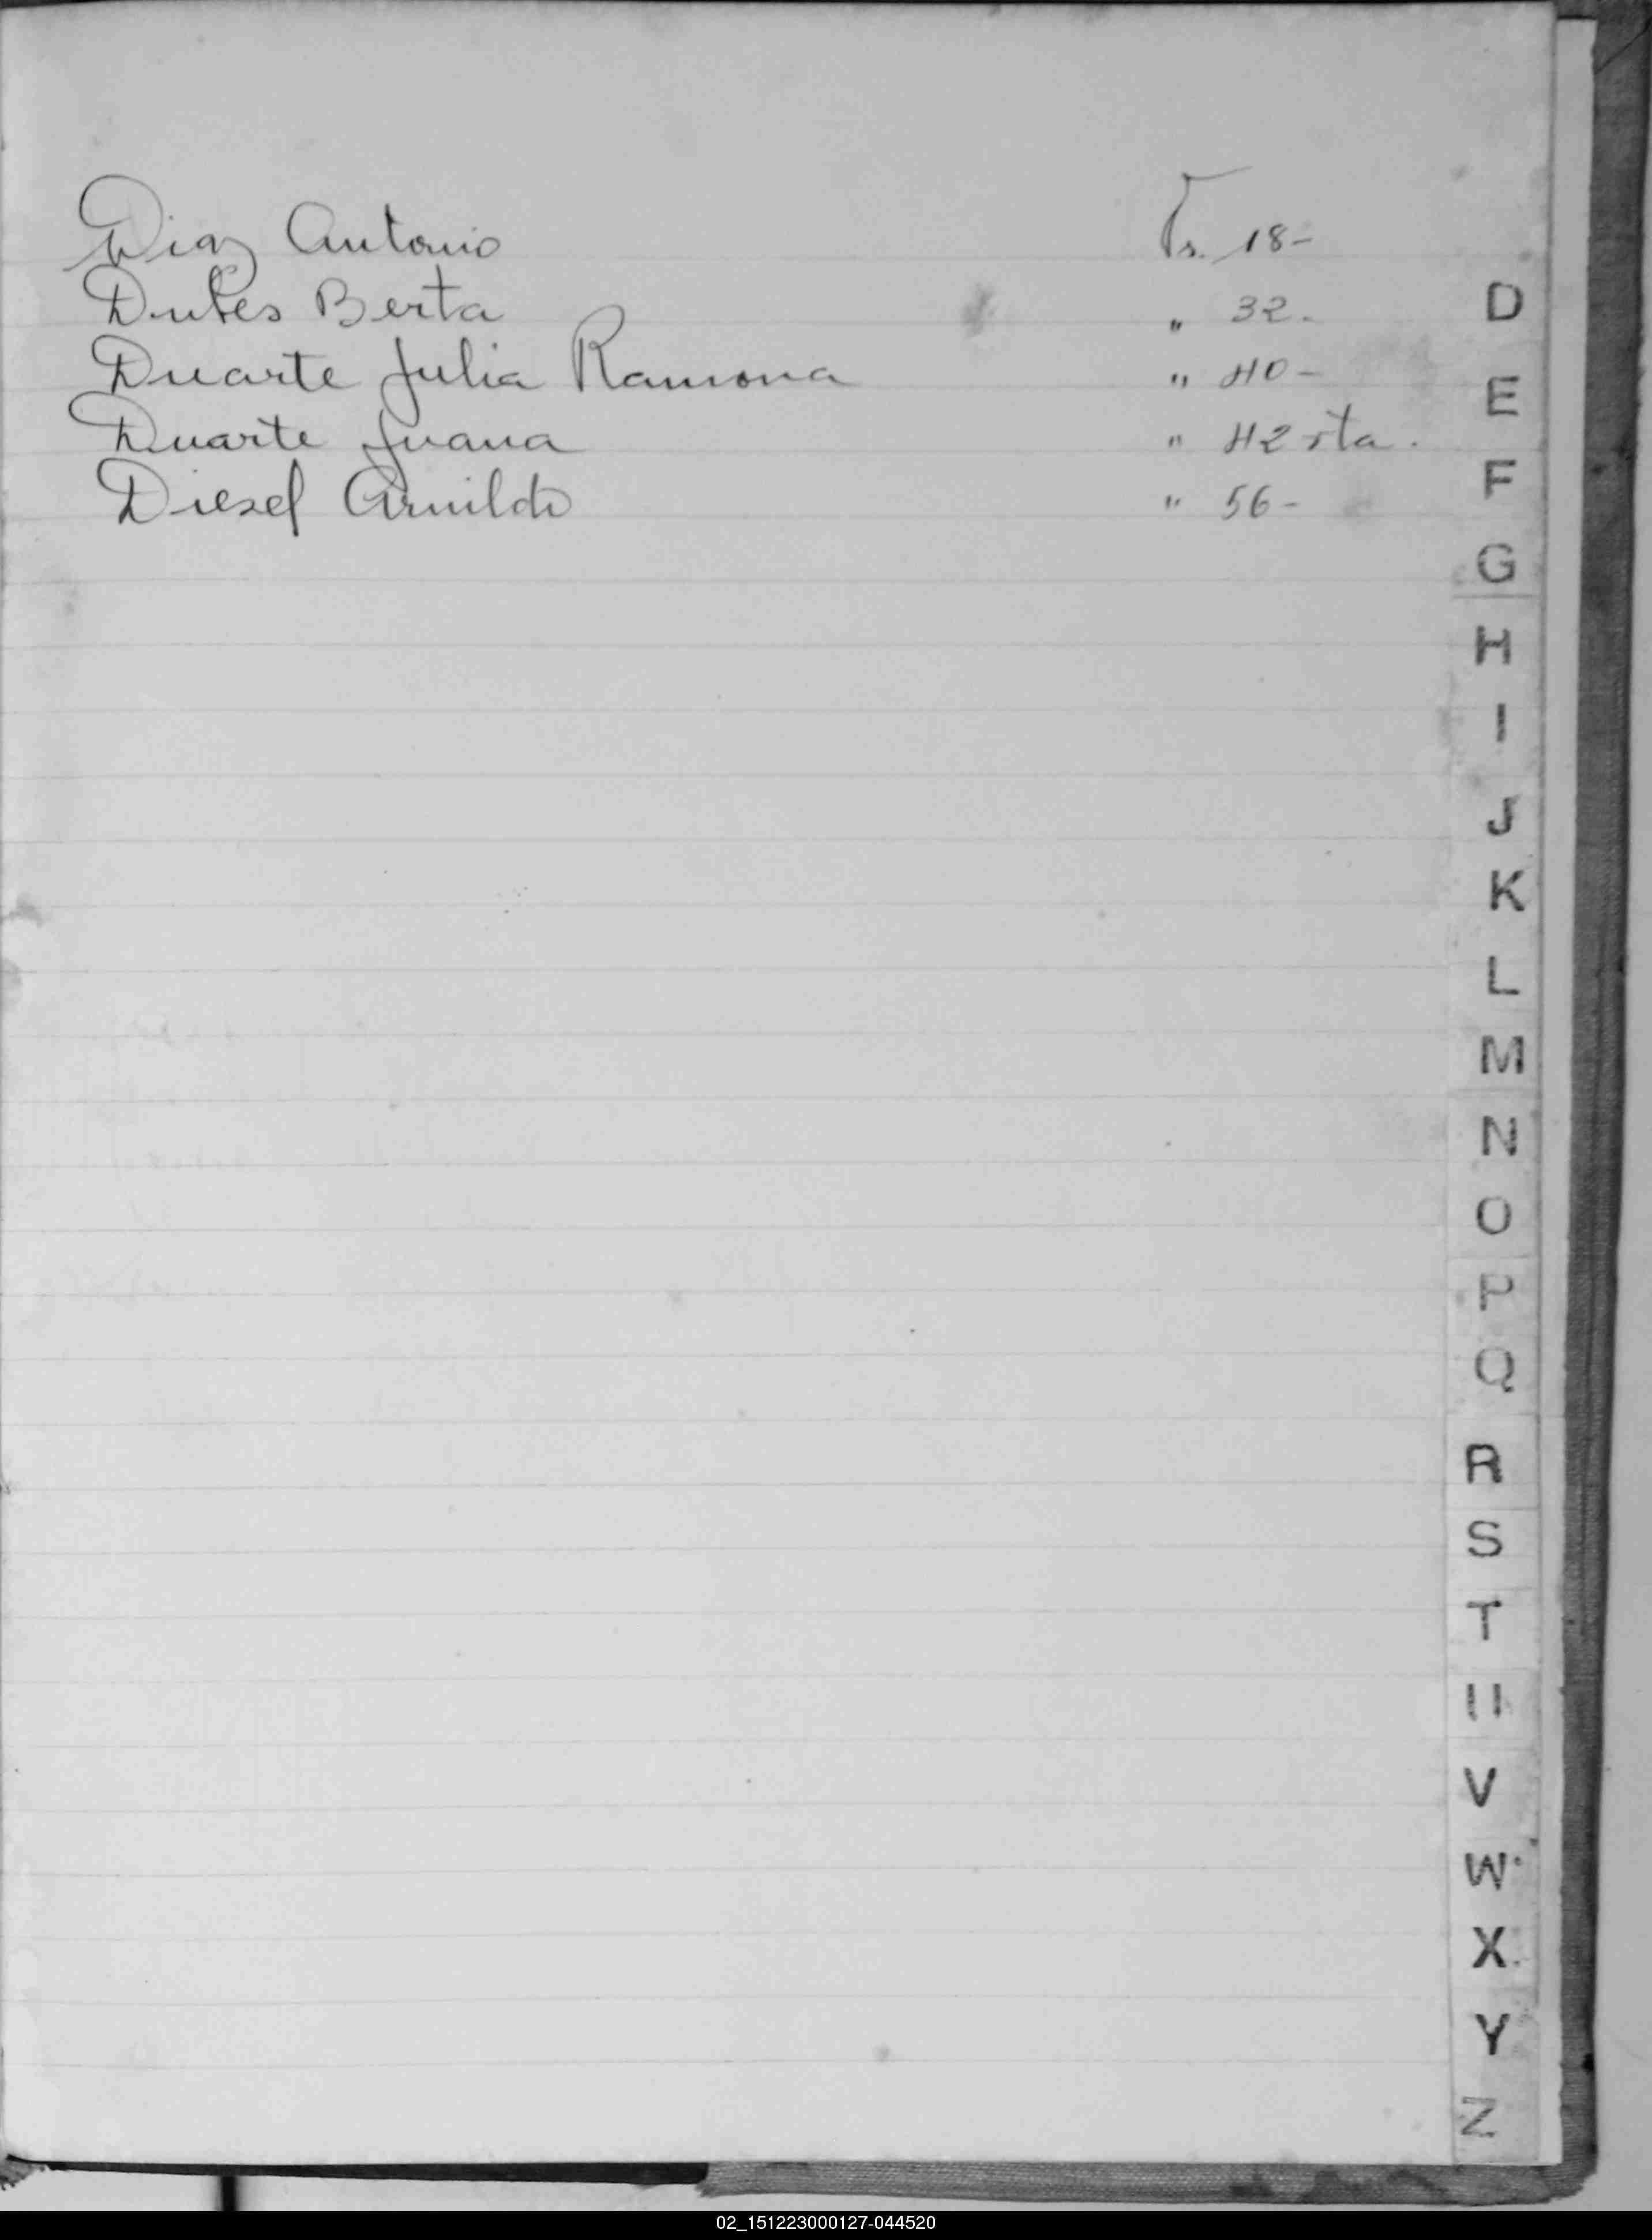 Diaz Antonio Fs. 18-
Dubes Berta " 32.
Duarte Julia Ramona " 40-
Duarte Juana " 42 vta.
Diesel Arnildo " 56-
D
E
F
G
H
I
J
K
L
M
N
O
P
Q
R
S
T
U
V
W
X
Y
Z
02_151223000127-044520